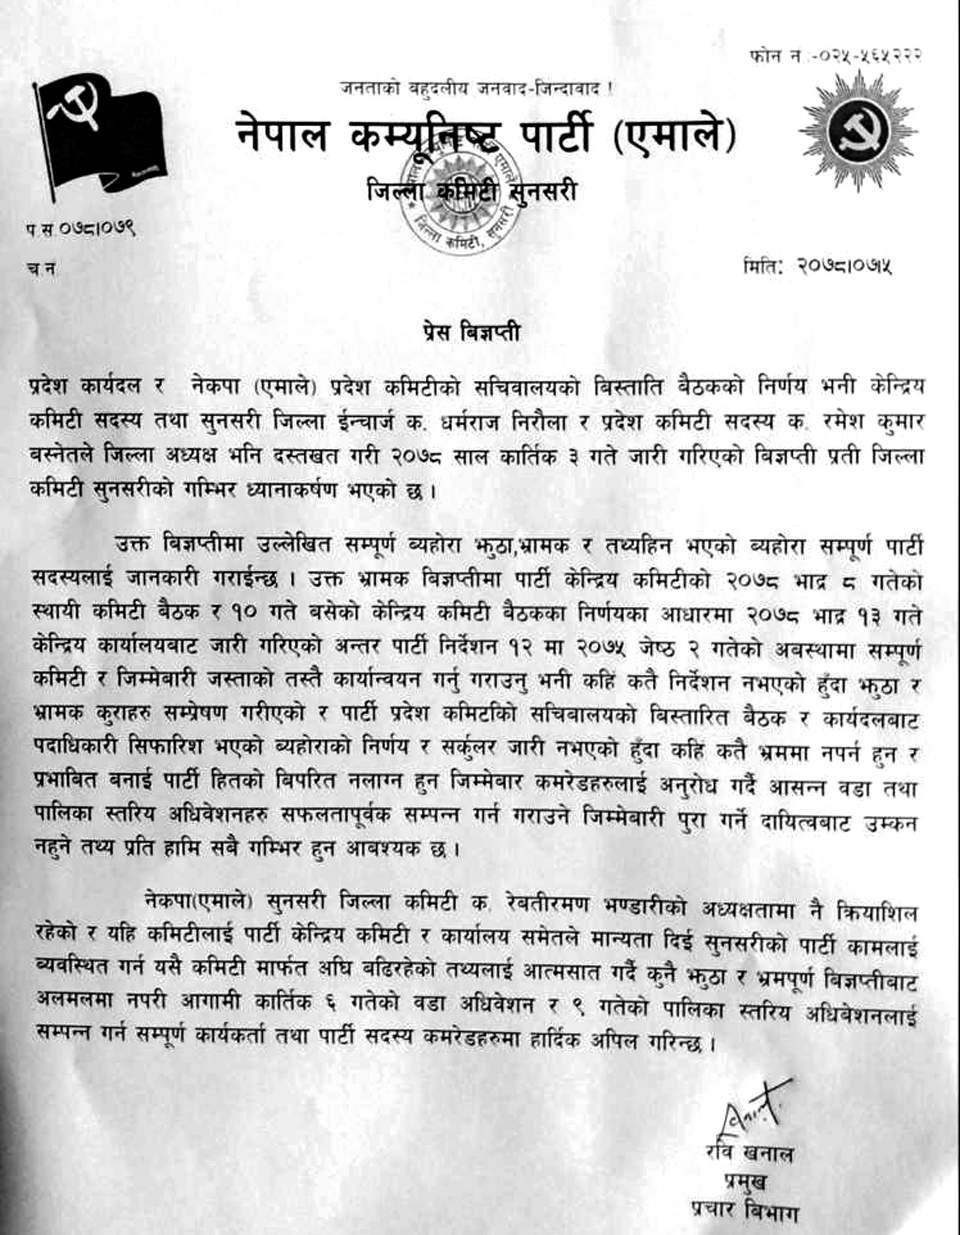 फोन न :-०२५-५६५२२२
जनताको बहुदलीय जनवाद-जिन्दावाद !
नेपाल कम्यूनिष्ट पार्टी (एमाले)
जिल्ला कमिटी सुनसरी
जिल्ला कमिटी, सुनसरी
प.स.०७८।०७९
च.न.
मिति: २०७८।०७।५
प्रेस बिज्ञप्ती
प्रदेश कार्यदल र नेकपा (एमाले) प्रदेश कमिटीको सचिवालयको बिस्ताति बैठकको निर्णय भनी केन्द्रिय
कमिटी सदस्य तथा सुनसरी जिल्ला ईन्चार्ज क. धर्मराज निरौला र प्रदेश कमिटी सदस्य क. रमेश कुमार
बस्नेतले जिल्ला अध्यक्ष भनि दस्तखत गरी २०७८ साल कार्तिक ३ गते जारी गरिएको बिज्ञप्ती प्रती जिल्ला
कमिटी सुनसरीको गम्भिर ध्यानाकर्षण भएको छ ।
उक्त बिज्ञप्तीमा उल्लेखित सम्पूर्ण ब्यहोरा झुठा,भ्रामक र तथ्यहिन भएको ब्यहोरा सम्पूर्ण पार्टी
सदस्यलाई जानकारी गराईन्छ । उक्त भ्रामक बिज्ञप्तीमा पार्टी केन्द्रिय कमिटीको २०७८ भाद्र ८ गतेको
स्थायी कमिटी बैठक र १० गते बसेको केन्द्रिय कमिटी बैठकका निर्णयका आधारमा २०७८ भाद्र १३ गते
केन्द्रिय कार्यालयबाट जारी गरिएको अन्तर पार्टी निर्देशन १२ मा २०७५ जेष्ठ २ गतेको अबस्थामा सम्पूर्ण
कमिटी र जिम्मेबारी जस्ताको तस्तै कार्यान्वयन गर्नु गराउनु भनी कहिं कतै निर्देशन नभएको हुँदा झुठा र
भ्रामक कुराहरु सम्प्रेषण गरीएको र पार्टी प्रदेश कमिटीको सचिबालयको बिस्तारित बैठक र कार्यदलबाट
पदाधिकारी सिफारिश भएको ब्यहोराको निर्णय र सर्कुलर जारी नभएको हुँदा कहि कतै भ्रममा नपर्न हुन र
प्रभाबित बनाई पार्टी हितको बिपरित नलाग्न हुन जिम्मेबार कमरेडहरुलाई अनुरोध गर्दै आसन्न वडा तथा
पालिका स्तरिय अधिवेशनहरु सफलतापूर्वक सम्पन्न गर्न गराउने जिम्मेबारी पुरा गर्ने दायित्वबाट उम्कन
नहुने तथ्य प्रति हामि सबै गम्भिर हुन आबश्यक छ ।
नेकपा(एमाले) सुनसरी जिल्ला कमिटी क. रेबतीरमण भण्डारीको अध्यक्षतामा नै क्रियाशिल
रहेको र यहि कमिटीलाई पार्टी केन्द्रिय कमिटी र कार्यालय समेतले मान्यता दिई सुनसरीको पार्टी कामलाई
ब्यवस्थित गर्न यसै कमिटी मार्फत अघि बढिरहेको तथ्यलाई आत्मसात गर्दै कुनै झुठा र भ्रमपूर्ण बिज्ञप्तीबाट
अलमलमा नपरी आगामी कार्तिक ६ गतेको वडा अधिवेशन र ९ गतेको पालिका स्तरिय अधिबेशनलाई
सम्पन्न गर्न सम्पूर्ण कार्यकर्ता तथा पार्टी सदस्य कमरेडहरुमा हार्दिक अपिल गरिन्छ ।
रवि खनाल
प्रमुख
प्रचार बिभाग